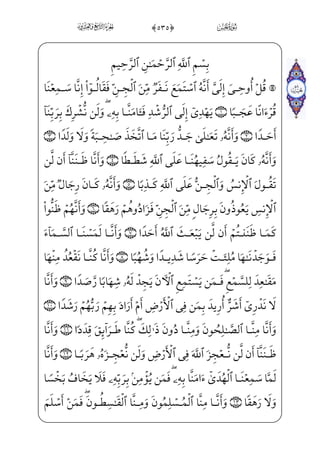 ﴿٥٣٥﴾
بِسْمِ ٱللَّهِ ٱلرَّحْمَـٰنِ ٱلرَّحِيمِ
۞ قُلْ أُوحِىَ إِلَىَّ أَنَّهُ ٱسْتَمَعَ نَفَرٌ مِّنَ ٱلْجِنِّ فَقَالُوٓا۟ إِنَّا سَمِعْنَا
قُرْءَانًا عَجَبًا ۝١ يَهْدِىٓ إِلَى ٱلرُّشْدِ فَـَٔامَنَّا بِهِۦ ۖ وَلَن نُّشْرِكَ بِرَبِّنَآ
أَحَدًا ۝٢ وَأَنَّهُۥ تَعَـٰلَىٰ جَدُّ رَبِّنَا مَا ٱتَّخَذَ صَـٰحِبَةً وَلَا وَلَدًا ۝٣
وَأَنَّهُۥ كَانَ يَقُولُ سَفِيهُنَا عَلَى ٱللَّهِ شَطَطًا ۝٤ وَأَنَّا ظَنَنَّآ أَن لَّن
تَقُولَ ٱلْإِنسُ وَٱلْجِنُّ عَلَى ٱللَّهِ كَذِبًا ۝٥ وَأَنَّهُۥ كَانَ رِجَالٌ مِّنَ
ٱلْإِنسِ يَعُوذُونَ بِرِجَالٍ مِّنَ ٱلْجِنِّ فَزَادُوهُمْ رَهَقًا ۝٦ وَأَنَّهُمْ ظَنُّوا۟
كَمَا ظَنَنتُمْ أَن لَّن يَبْعَثَ ٱللَّهُ أَحَدًا ۝٧ وَأَنَّا لَمَسْنَا ٱلسَّمَآءَ
فَوَجَدْنَـٰهَا مُلِئَتْ حَرَسًا شَدِيدًا وَشُهُبًا ۝٨ وَأَنَّا كُنَّا نَقْعُدُ مِنْهَا
مَقَـٰعِدَ لِلسَّمْعِ ۖ فَمَن يَسْتَمِعِ ٱلْـَٔانَ يَجِدْ لَهُۥ شِهَابًا رَّصَدًا ۝٩ وَأَنَّا
لَا نَدْرِىٓ أَشَرٌّ أُرِيدَ بِمَن فِى ٱلْأَرْضِ أَمْ أَرَادَ بِهِمْ رَبُّهُمْ رَشَدًا ۝١٠
وَأَنَّا مِنَّا ٱلصَّـٰلِحُونَ وَمِنَّا دُونَ ذَٰلِكَ ۖ كُنَّا طَرَآئِقَ قِدَدًا ۝١١ وَأَنَّا
ظَنَنَّآ أَن لَّن نُّعْجِزَ ٱللَّهَ فِى ٱلْأَرْضِ وَلَن نُّعْجِزَهُۥ هَرَبًا ۝١٢ وَأَنَّا
لَمَّا سَمِعْنَا ٱلْهُدَىٰٓ ءَامَنَّا بِهِۦ ۖ فَمَن يُؤْمِنۢ بِرَبِّهِۦ فَلَا يَخَافُ بَخْسًا
وَلَا رَهَقًا ۝١٣ وَأَنَّا مِنَّا ٱلْمُسْلِمُونَ وَمِنَّا ٱلْقَـٰسِطُونَ ۖ فَمَنْ أَسْلَمَ